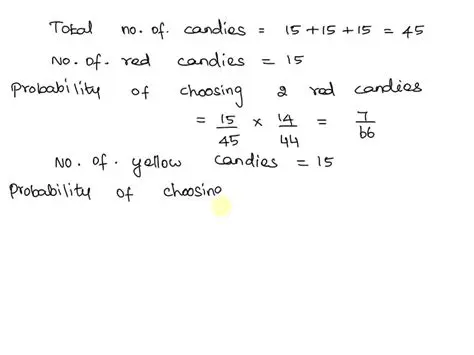 Total no. of. candies = 15 +15 + 15 = 45
No. of. red candies = 15
Probability of choosing 2 red candies
= 15/45 × 14/44 = 7/66
No. of. yellow candies = 15
Probability of choosing